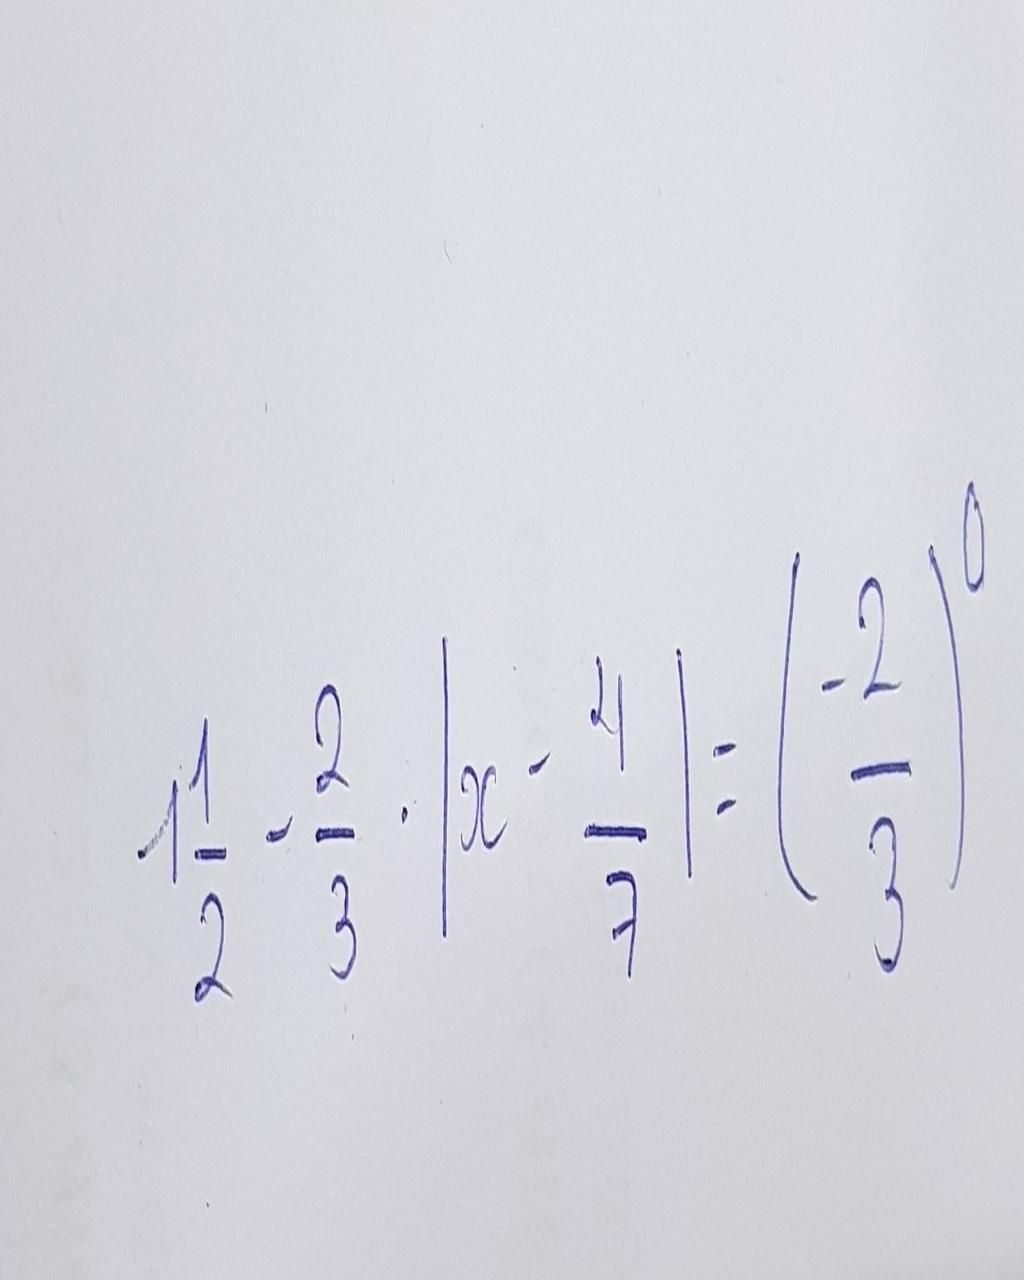 1 1/2 - 2/3 · |x - 4/7| = (-2/3)^0